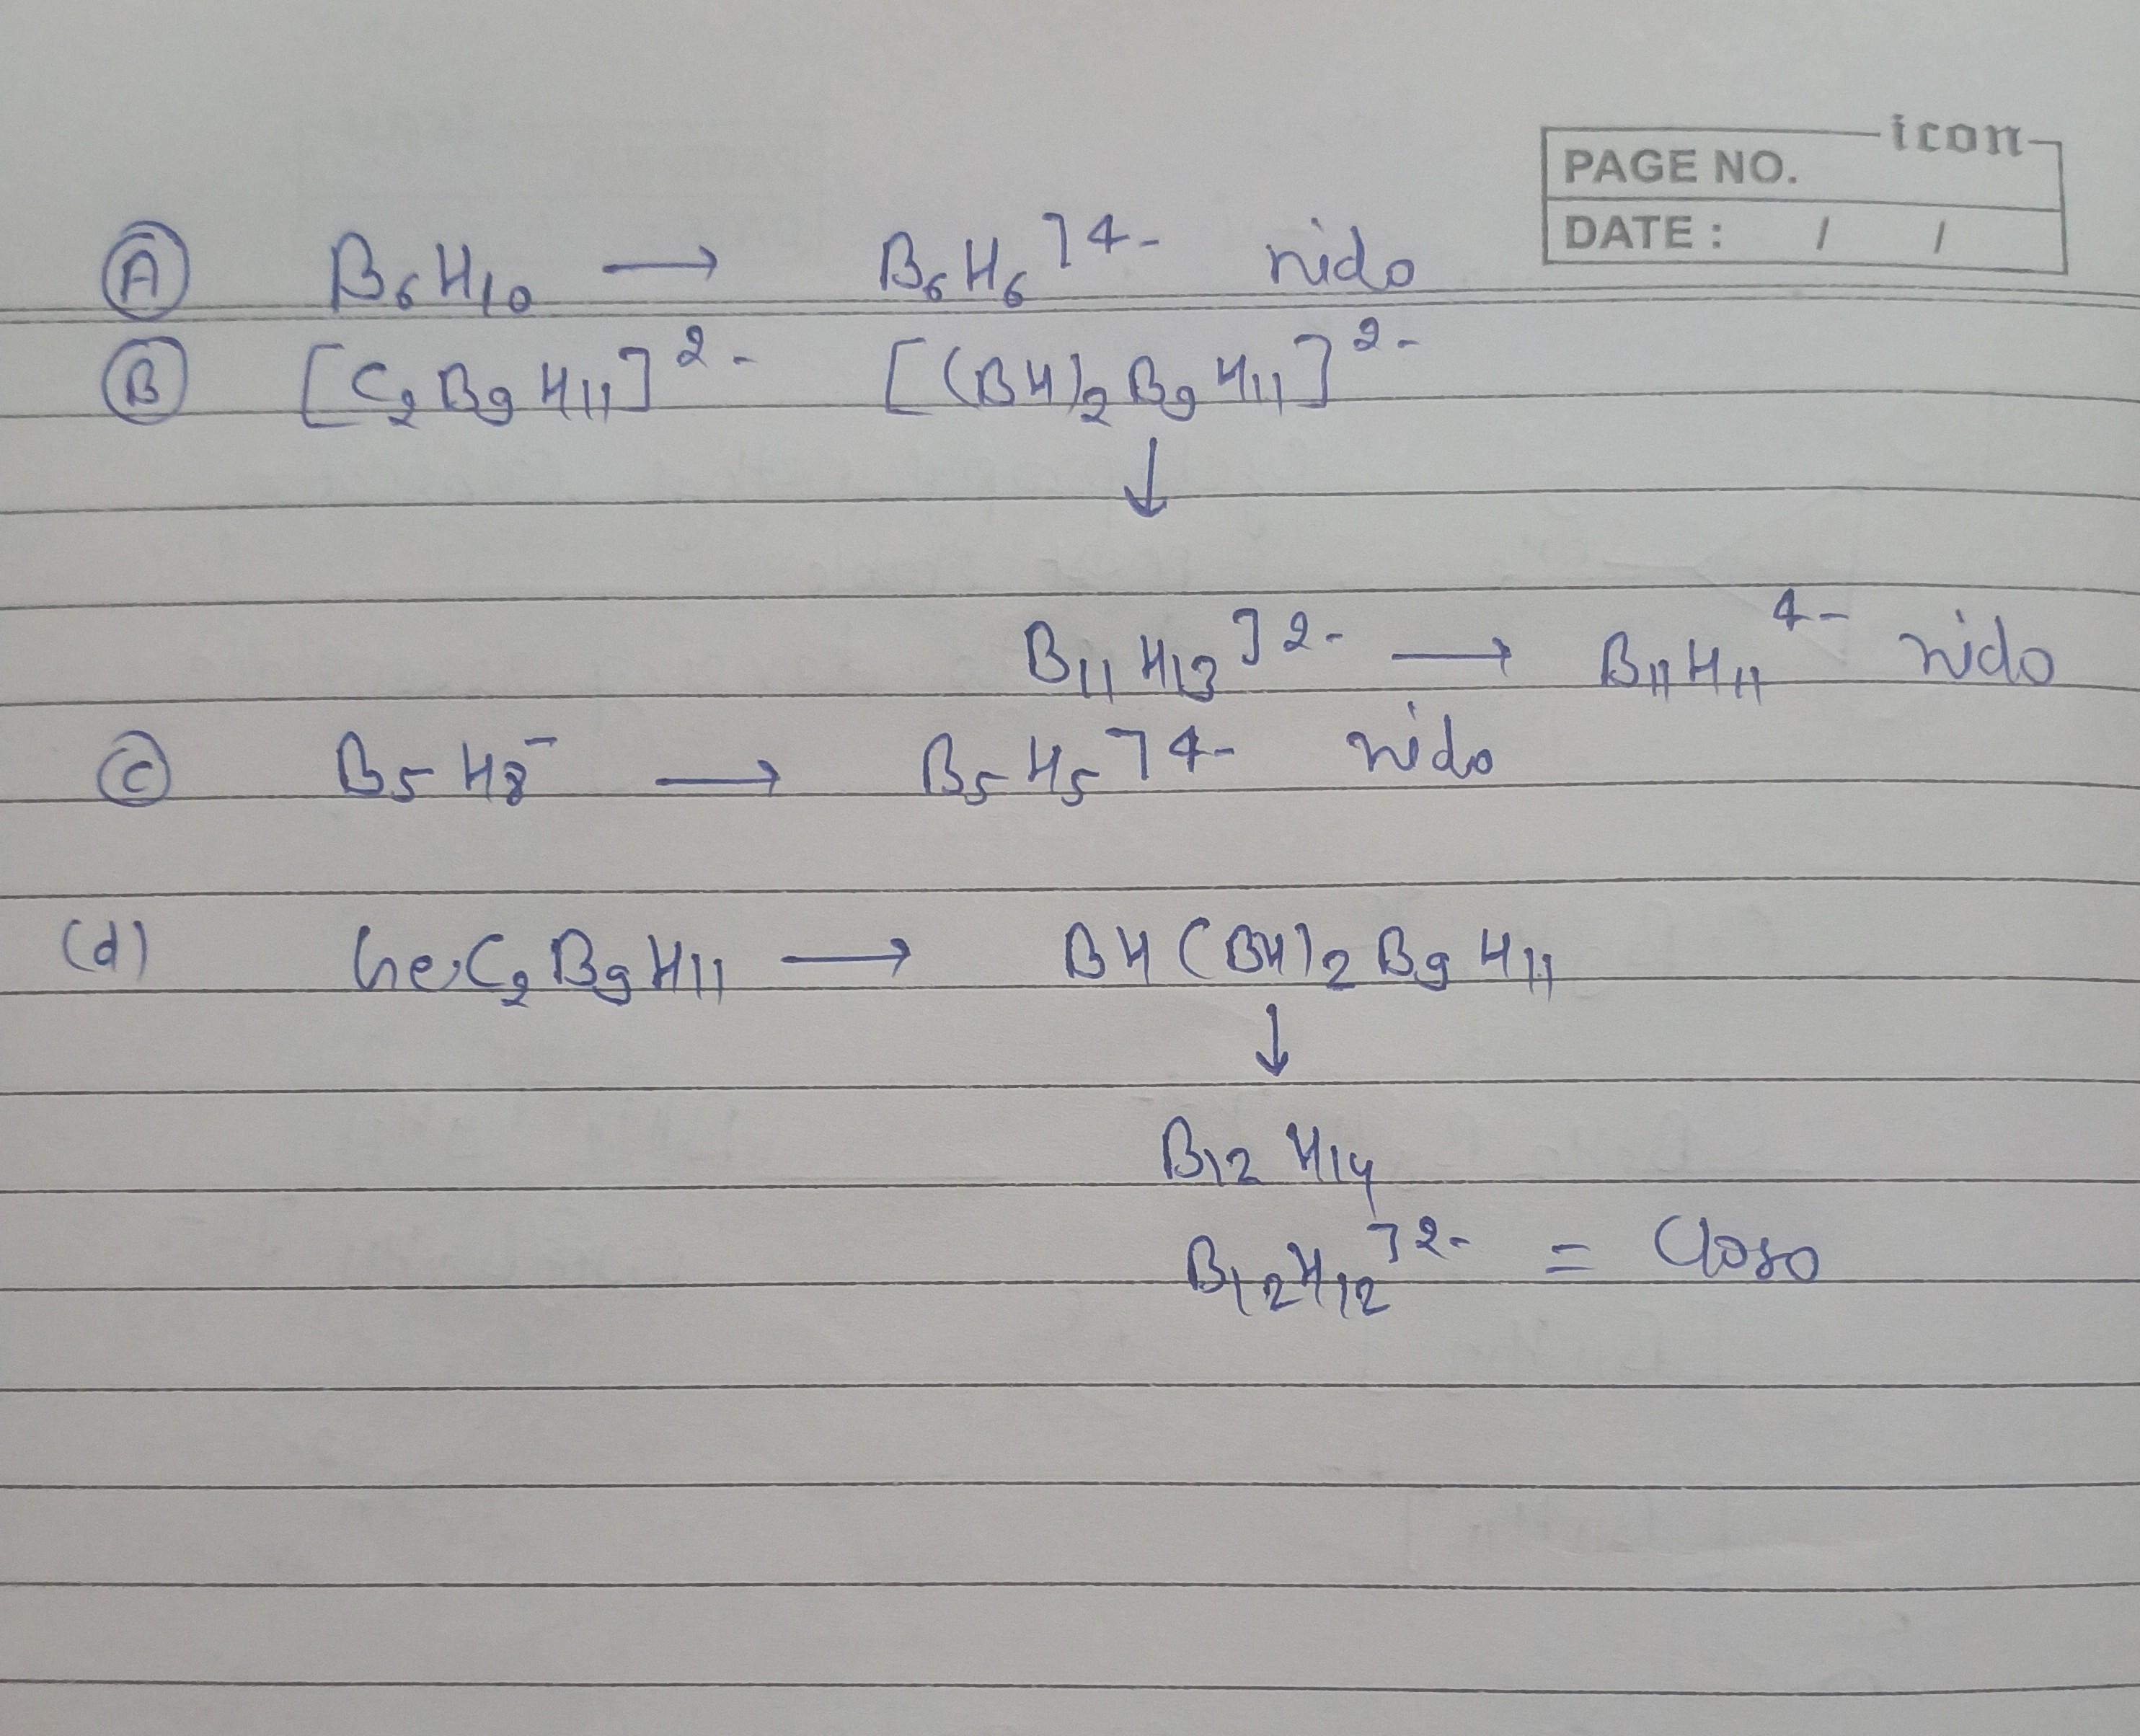 icon
PAGE NO.
DATE : / /
Ⓐ B₆H₁₀ → B₆H₆]⁴⁻ nido
Ⓑ [C₂B₉H₁₁]²⁻ [(BH)₂B₉H₁₁]²⁻
↓
B₁₁H₁₃]²⁻ → B₁₁H₁₁⁴⁻ nido
Ⓒ B₅H₈⁻ → B₅H₅]⁴⁻ nido
(d) GeC₂B₉H₁₁ → BH(BH)₂B₉H₁₁
↓
B₁₂H₁₄
B₁₂H₁₂]²⁻ = Closo